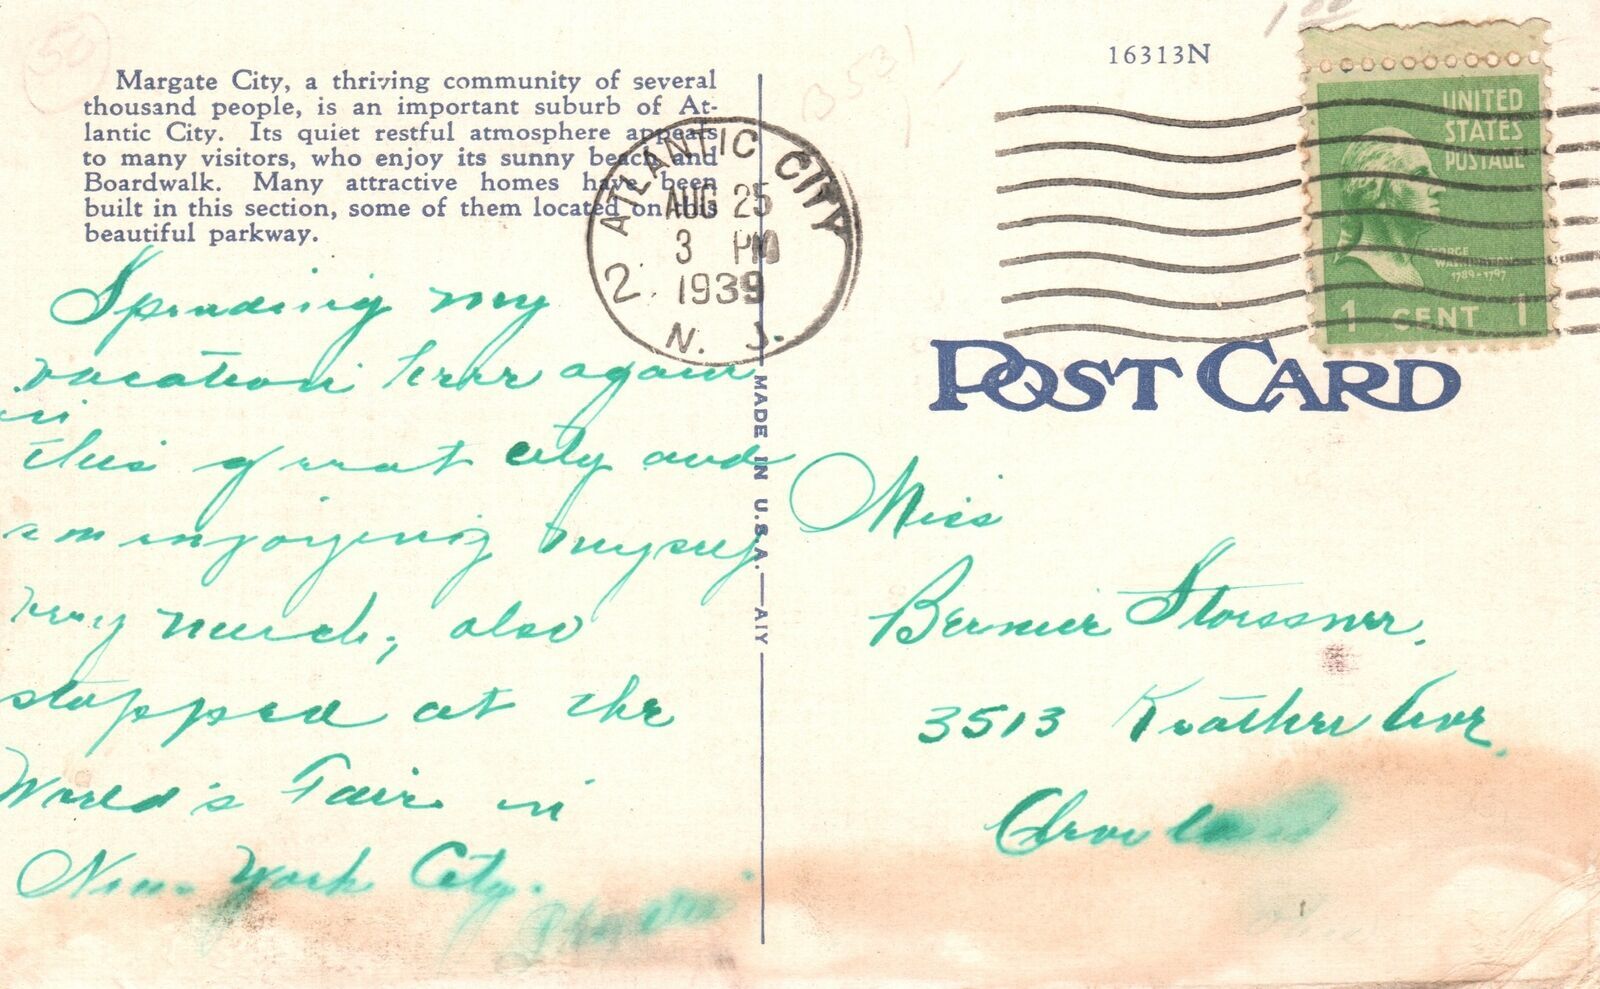 50
Margate City, a thriving community of several
thousand people, is an important suburb of At-
lantic City. Its quiet restful atmosphere appeals
to many visitors, who enjoy its sunny beach and
Boardwalk. Many attractive homes have been
built in this section, some of them located on this
beautiful parkway.
Spending my
vacation here again
in
this great city and
am enjoying myself
very much, also
stopped at the
World's Fair in
New York City.
ATLANTIC CITY
AUG 25
3 PM
1939
2.
N. J.
MADE IN U.S.A.—AIY
16313N
UNITED
STATES
POSTAGE
GEORGE
WASHINGTON
1789-1797
1 CENT 1
POST CARD
Miss
Bernice Stoessner.
3513 Ave.
Cleveland